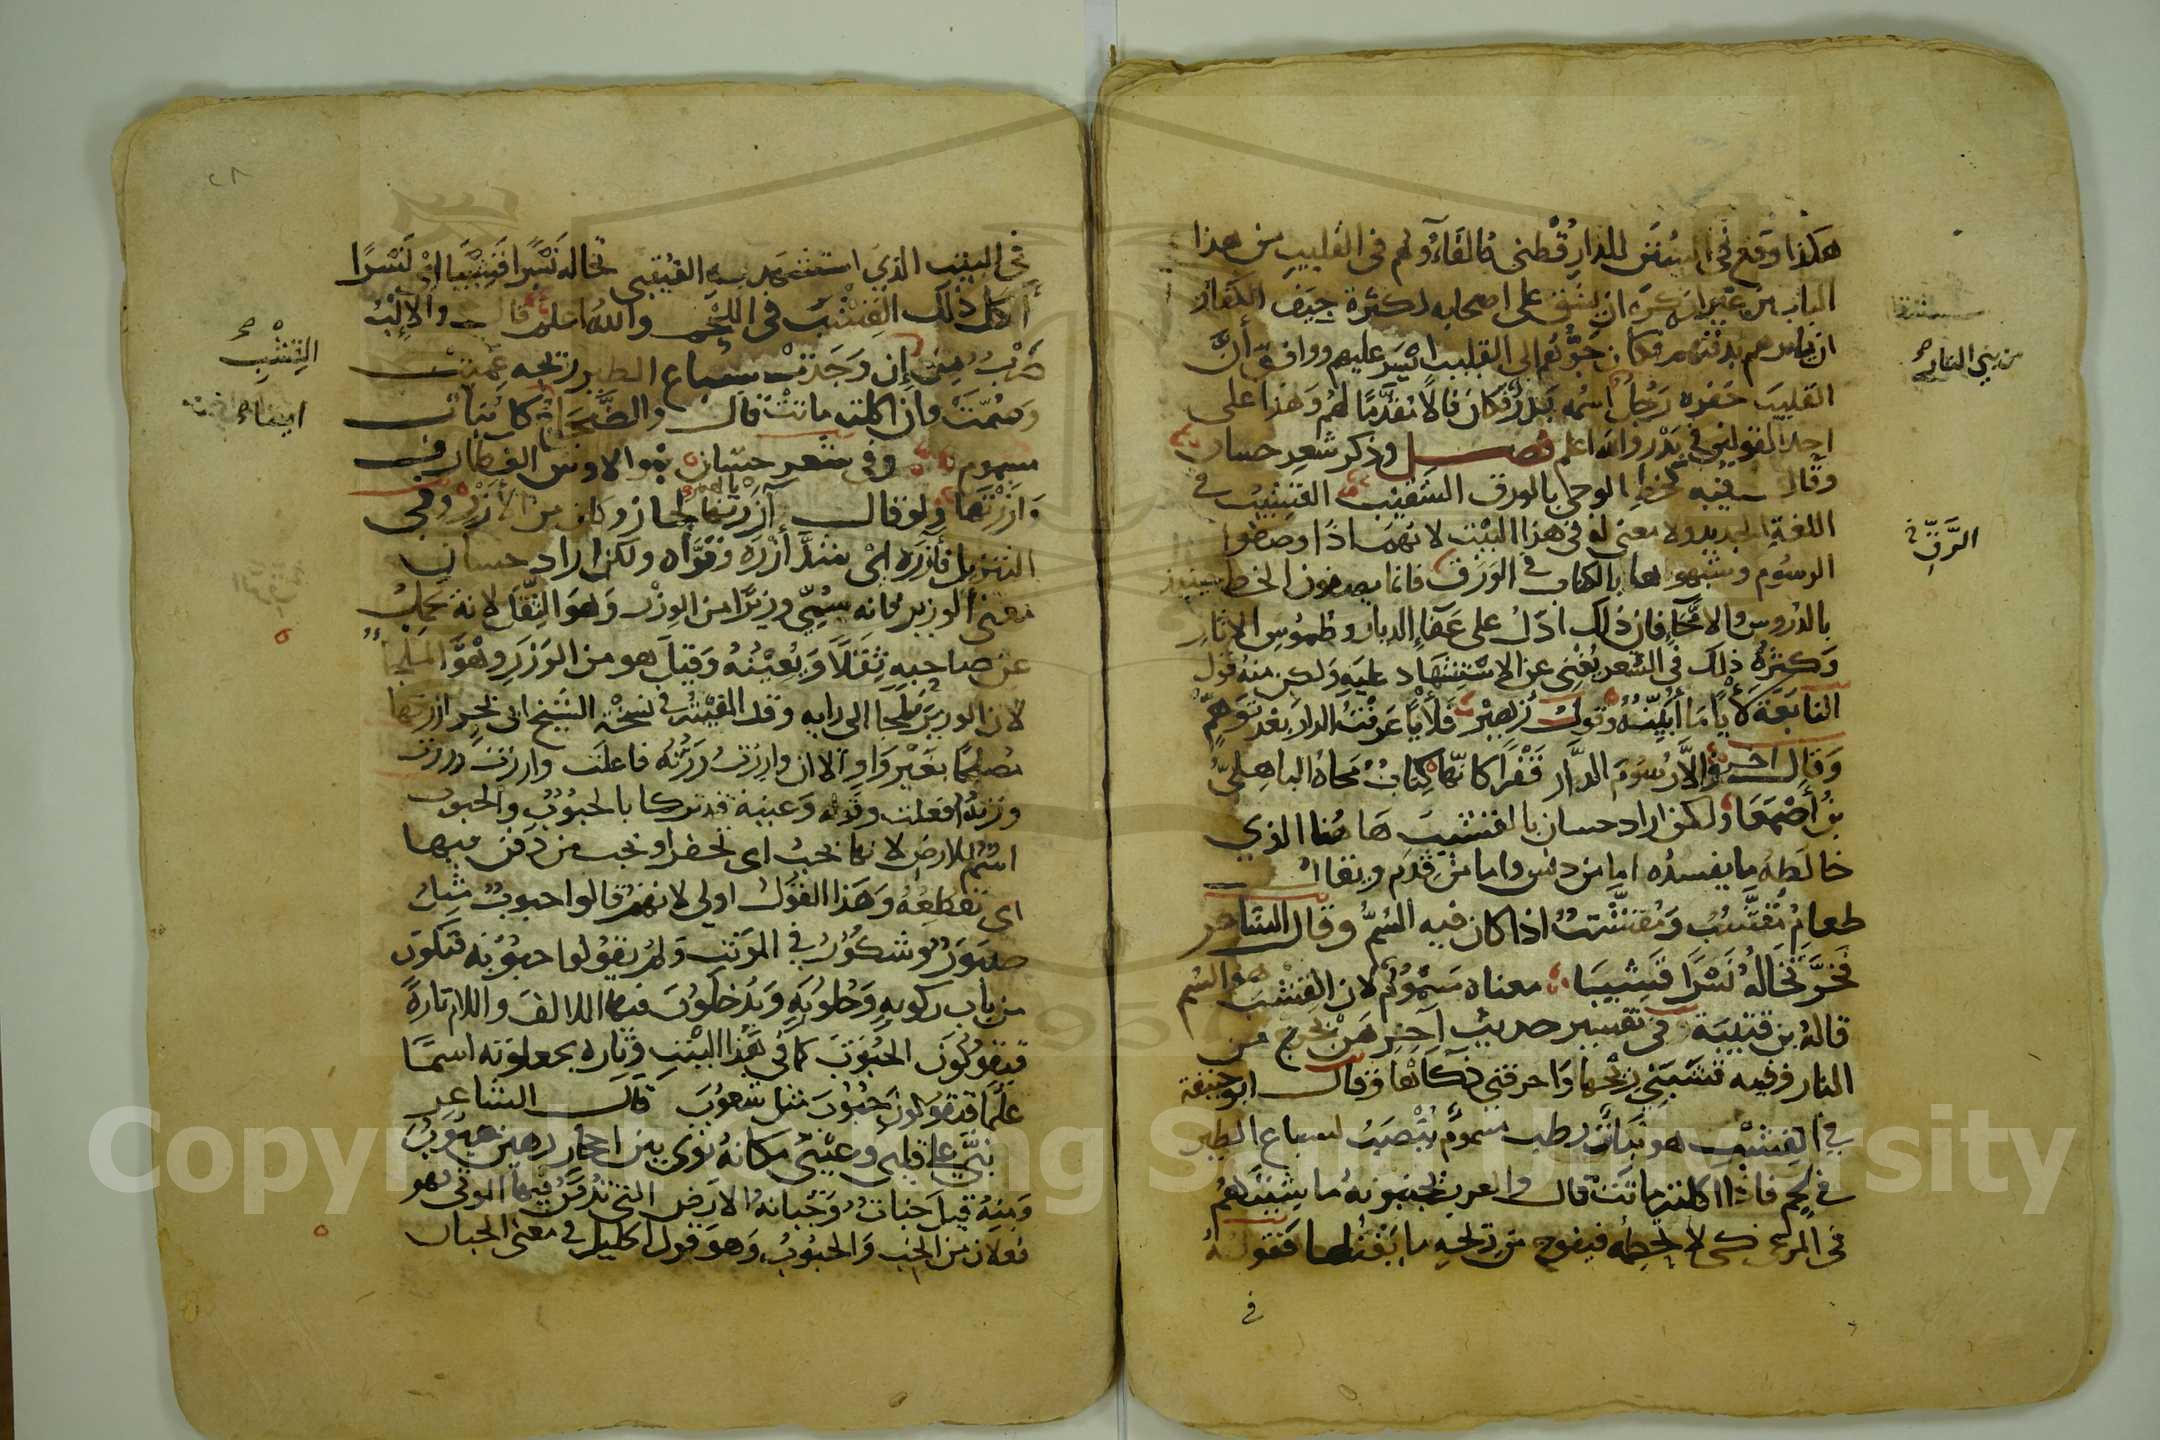 هكذا وقع في السنن للدارقطني فالقاؤهم في القليب من هذا
الباب من غير انه كره ان يشق على اصحابه لكثرة جيف الكفار
ان يامرهم بدفنهم فكان جرهم الى القليب ايسر عليهم ووافق أن
القليب حفره رجل اسمه بدر فكان فالا مقدما لهم وهذا على
احد القولين في بدر والله اعلم فصل وذكر شعر حسان
وقال فيه كخط الوحي بالورق القشيب القشيب في
اللغة الجديد ولا معنى له في هذا البيت لانهم اذا وصفوا
الرسوم وشبهوها بالكتاب في الورق فانما يصفون الخط حينئذ
بالدروس والامحاء فان ذلك ادل على عفاء الديار وطموس الاثار
وكثرة ذلك في الشعر يغني عن الاستشهاد عليه ولكن منه قول
النابغة لأيا ما أبينه وقول زهير فلأيا عرفت الدار بعد توهم
وقال اخر والا رسوم الدار قفرا كانها كتاب محاه الباهلي
بن أصمعا ولكن اراد حسان بالقشيب ها هنا الذي
خالطه ما يفسده اما من دنس واما من قدم ويقال
طعام مقشب وقشيب اذا كان فيه السم وقال الشاعر
فخر تخاله نسرا قشيبا معناه مسموم لان القشب هو السم
قاله بن قتيبة في تفسير حديث آخر من يخرج من
النار وفيه قشبني ريحها واحرقني ذكاؤها وقال ابو حنيفة
في القشب هو نبات رطب مسموم ينصب لسباع الطير
في لحم فاذا اكلته ماتت قال والعرب يجنبونه ماشيتهم
في المرعى كي لا تحطمه فيفوح من ريحه ما يقتلها فقوله
في
من بني النجار
الرق
في البيت الذي استشهد به القتيبي تخاله نسرا قشيبا اي نسرا
أكل ذلك القشب في اللحم والله اعلم قال والالب
ضرب منه إن وجدت سباع الطير ريحه عميت
وصمت وان اكلته ماتت قال والضجاج كل نبات
مسموم وفي شعر حسان بنو الاوس الغطارف
وازرتها ولو قال آزرتها بالهمز لجاز وكان من الأزر وفي
التنزيل فأزره اي شد أزره وقواه ولكن اراد حسان
معنى الوزير فانه سمي وزيرا من الوزر وهو الثقل لانه يحمل
عن صاحبه ثقلا ويعينه وقيل هو من الوزر وهو الملجأ
لان الوزير يلجا الى رايه وقد القيته في نسخة الشيخ ابي بحر ازرتها
مصلحا بغير واو الا ان وازرت وزنه فاعلت وازرت
وزنه افعلت وقوله وعتبة قد تركنا بالجبوب والجبوب
اسم للارض لانها تجب اي تحفر او تجب من دفن فيها
اي تقطعه وهذا القول اولى لانهم قالوا جبوب مثل
صبور وشكور في المونث ولم يقولوا جبوبة فتكون
من باب ركوبه وحلوبه ويدخلون فيها الالف واللام تارة
فيقولون الجبوب كما في هذا البيت وتارة يجعلونه اسما
علما فيقولون جبوب مثل شعوب قال الشاعر
بنى على قلبي وعيني مكانه ثوى بين احجار رهين جبوب
ومنه قيل جبان وجبانه الارض التي تدفن فيها الموتى وهو
فعلان من الجب والجبوب وهو قول الخليل في معنى الجبان
القشب